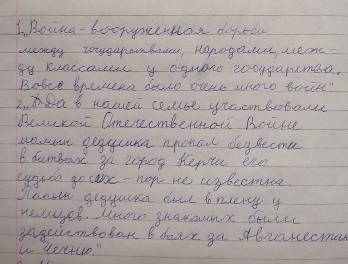 1. „Война - вооруженная борьба
между государствами, народами меж-
ду классами у одного государства.
Вовсе времена было очень много войн"
2. „Да в нашей семье участвовали
Великой Отечественной Войне
дедушка пропал безвести
в битвах за город Керчь его
судьба до сих - пор не известна
дедушка был в плену у
немцев. Много знакомых были
задействован в боях за Афганестан
и Чечню."